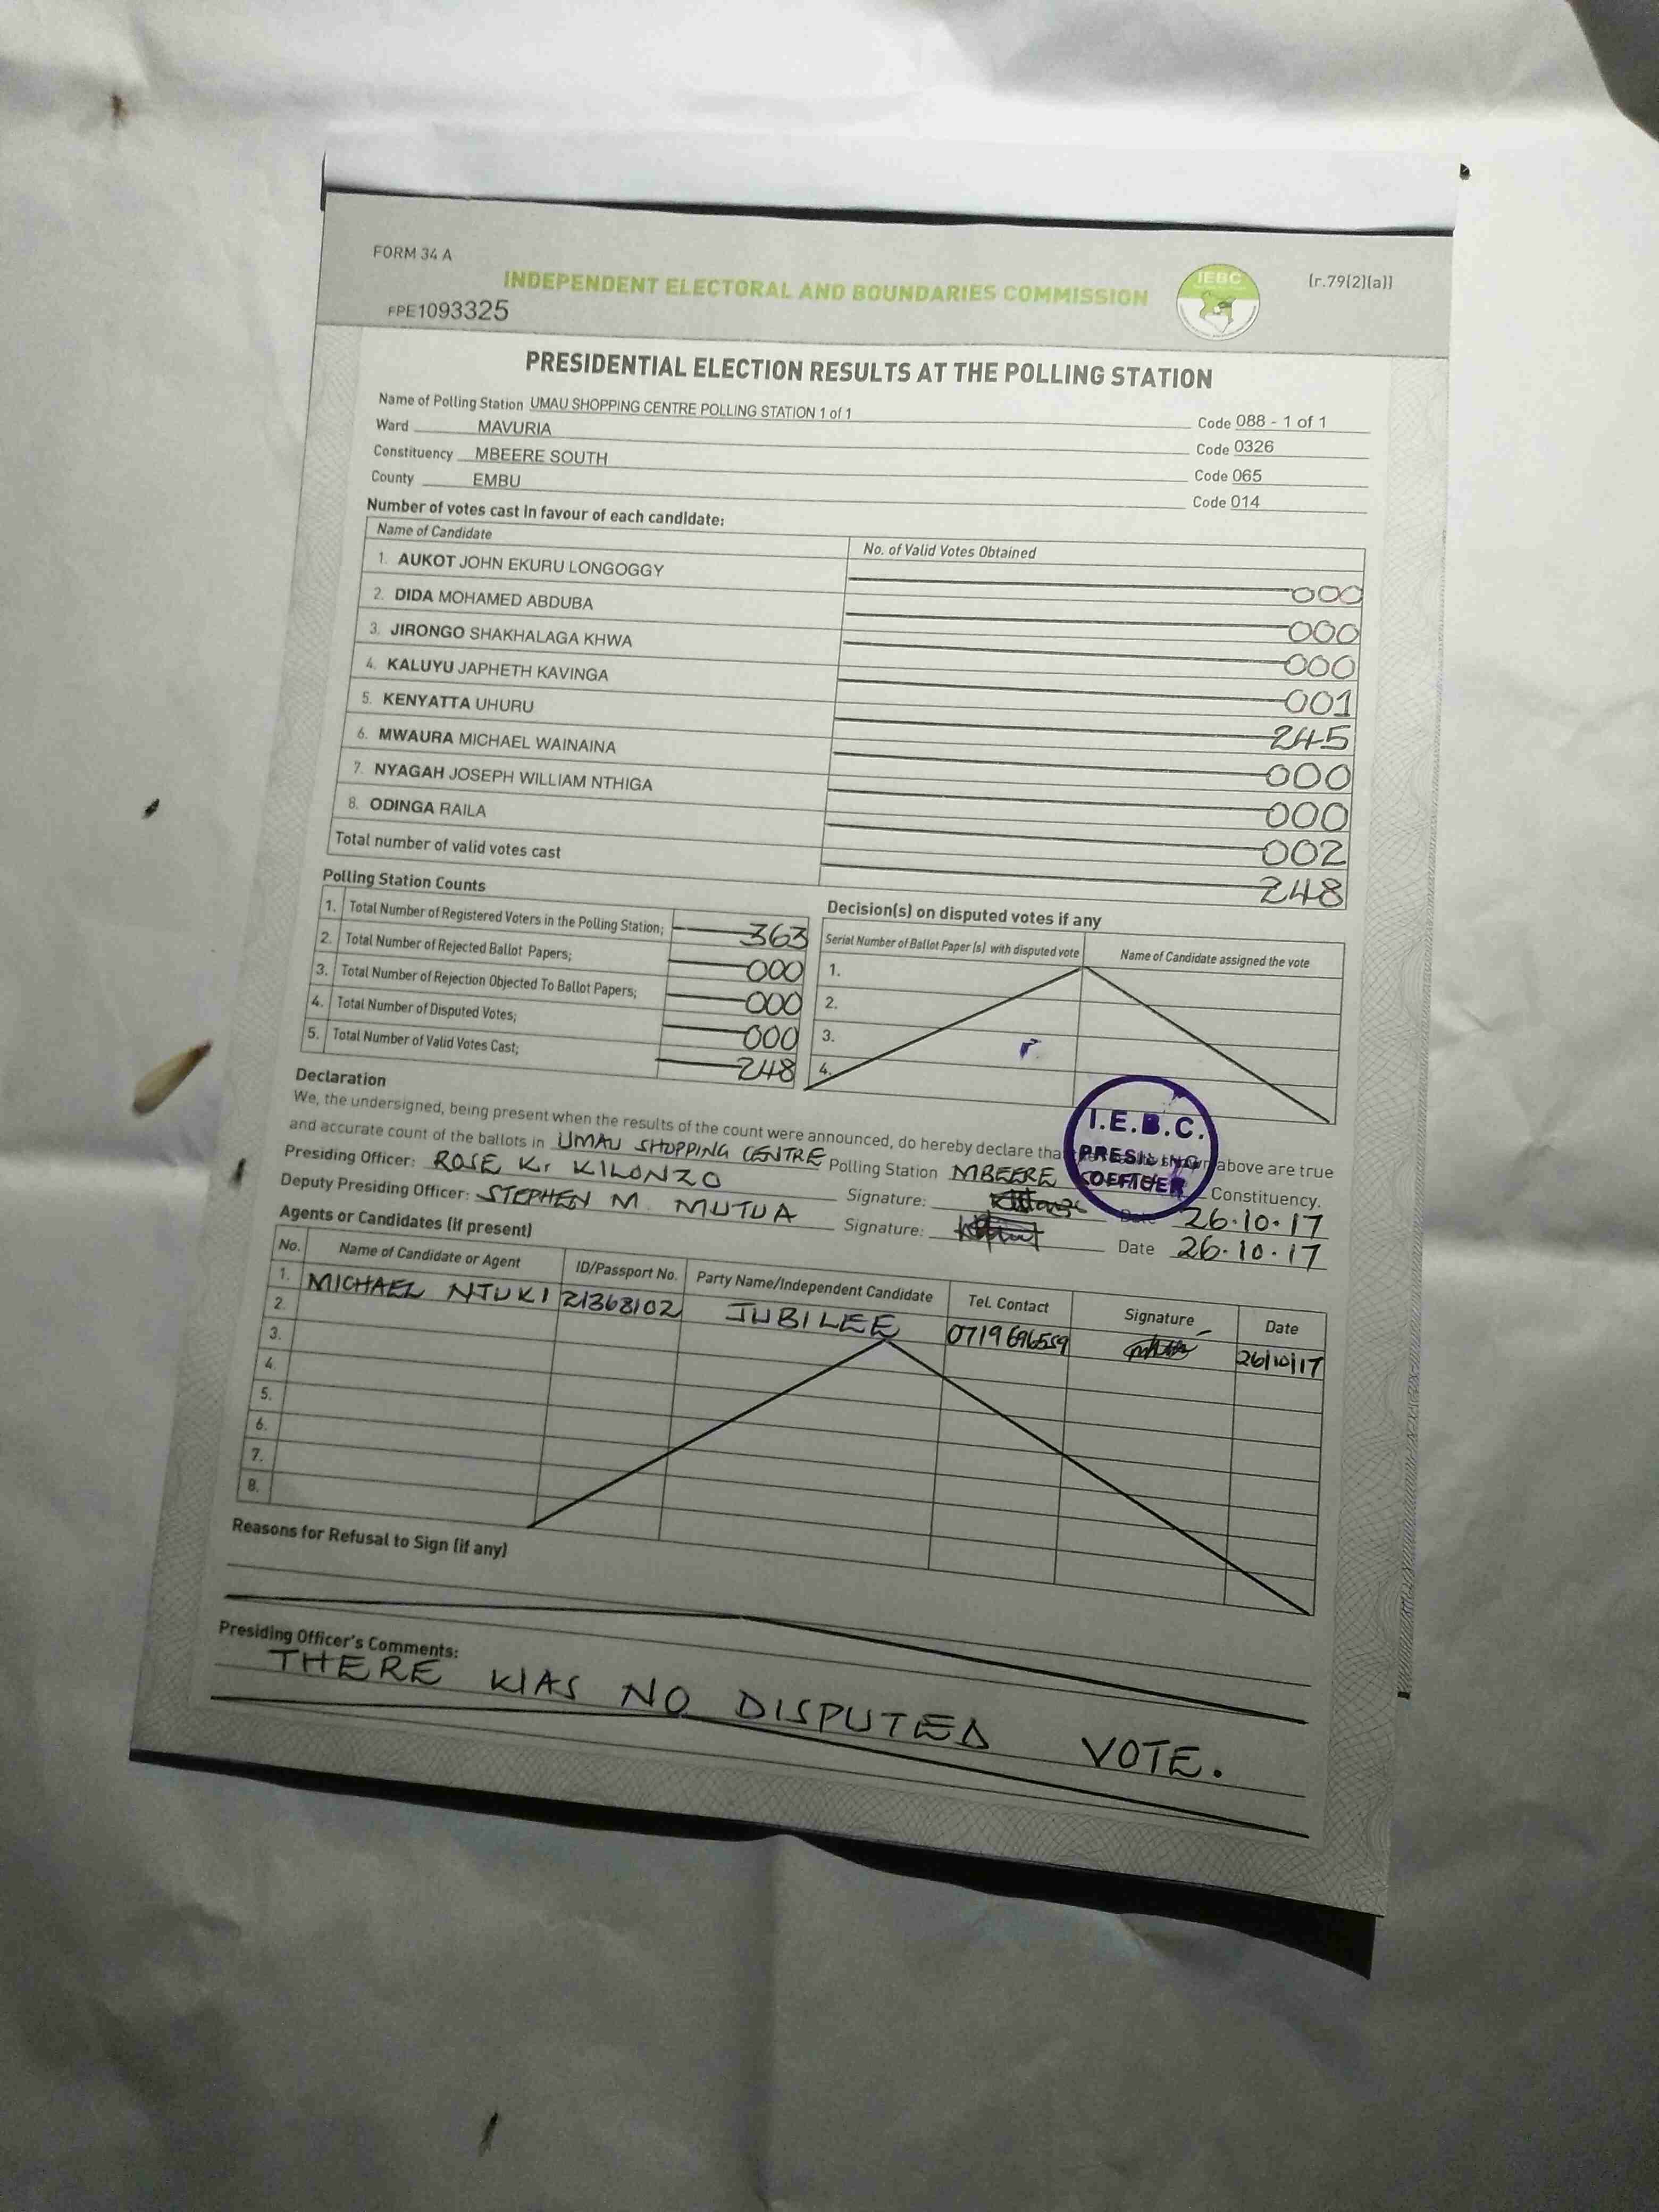 FORM 34 A
INDEPENDENT ELECTORAL AND BOUNDARIES COMMISSION
IEBC
(r.79(2)(a))
FPE1093325
PRESIDENTIAL ELECTION RESULTS AT THE POLLING STATION
Name of Polling Station UMAU SHOPPING CENTRE POLLING STATION 1 of 1 Code 088 - 1 of 1
Ward MAVURIA Code 0326
Constituency MBEERE SOUTH Code 065
County EMBU Code 014
Number of votes cast in favour of each candidate:
Name of Candidate No. of Valid Votes Obtained
1. AUKOT JOHN EKURU LONGOGGY 000
2. DIDA MOHAMED ABDUBA 000
3. JIRONGO SHAKHALAGA KHWA 000
4. KALUYU JAPHETH KAVINGA 001
5. KENYATTA UHURU 245
6. MWAURA MICHAEL WAINAINA 000
7. NYAGAH JOSEPH WILLIAM NTHIGA 000
8. ODINGA RAILA 002
Total number of valid votes cast 248
Polling Station Counts
1. Total Number of Registered Voters in the Polling Station; 363
2. Total Number of Rejected Ballot Papers; 000
3. Total Number of Rejection Objected To Ballot Papers; 000
4. Total Number of Disputed Votes; 000
5. Total Number of Valid Votes Cast; 248
Decision(s) on disputed votes if any
Serial Number of Ballot Paper (s) with disputed vote Name of Candidate assigned the vote
1.
2.
3.
4.
Declaration
We, the undersigned, being present when the results of the count were announced, do hereby declare that shown above are true
and accurate count of the ballots in UMAU SHOPPING CENTRE Polling Station MBEERE Constituency.
I.E.B.C.
PRESIDING
OFFICER
Presiding Officer: ROSE K. KILONZO Signature: Date 26.10.17
Deputy Presiding Officer: STEPHEN M. MUTUA Signature: Date 26.10.17
Agents or Candidates (if present)
No. Name of Candidate or Agent ID/Passport No. Party Name/Independent Candidate Tel. Contact Signature Date
1. MICHAEL NTUKI 21368102 JUBILEE 0719696559 26/10/17
2.
3.
4.
5.
6.
7.
8.
Reasons for Refusal to Sign (if any)
Presiding Officer's Comments:
THERE WAS NO DISPUTED VOTE.